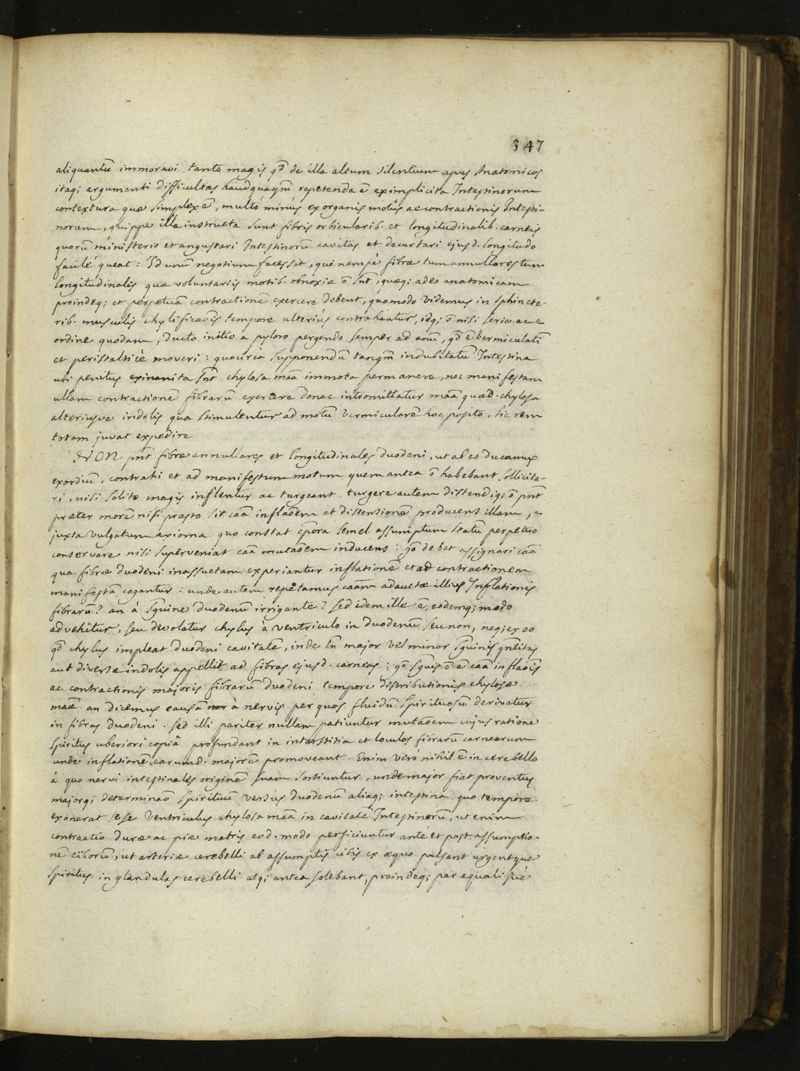 347
aliquantū immorari tanto magis qd de illa altum silentium apus Anatomicos
itaq; argumenti difficultas haudquaqm̄ repetenda ē ex implicita Intestinorum
contextura quæ simplex ē, multo minus ex organis motus ac contractionis Intesti-
norum, quippe illa instructa sunt fibris orbicularib. et longitudinalib. carneis
quorū ministerio et angustari Intestinorū cavitas et decurtari ejusd. longitudo
facile queat: Id unū negotium facessit, qui nempe fibræ tum annullares tum
longitudinales quæ voluntariis motib. obnoxiæ ō snt, quæq; adeo anatomicam
proindeq; et perpetuā contractione exercere debent, quomodo videmus in sphincte-
rib. musculis chylificaōis tempore alterius contrahantur, idq; ō nisi serie ac
ordine quodam, ducto initio a pyloro pergendo semper ad anū, qd ē vermiculati
et peristaltice moveri: quocirca supponendū tanqm̄ indubitatū Intestina
ubi penitus exinanita snt chylosa māa immota permanere, nec manifestam
ullam contractionē fibrarū exercere donec intromittatur māa quæd. chylosa
alteriusve indolis qua stimulentur ad motū vermicularē hoc posito, sic rem
totam juvat expedire
NON pnt fibræ annullares et longitudinales duodeni, ut ab eo ducamus
exordiū, contrahi et ad manifestum motum quem antea ō habebant sollicita-
ri, nisi solito magis inflentur ac turgeant. turgere autem distendiq; ō pnt
præter morē nisi præsto sit cāa inflāoēm et distensionē producens illam,
juxta vulgatum axioma quo constat cpora semel assumptum statū perpetuo
conservare nisi superveniat cāa mutāoem inducens: qa debet assignari cāa
qua fibræ duodeni inassuetam experiantur inflationē et ad contractionem
manifestā cogantur: unde autem repetamus cāam adauctæ illius Inflationis
fibrarū? an à sguine duodenū irrigante? sed idem ille ē, eodemq; modo
advehitur, seu devolatur chylus à ventriculo in duodenū seu non, neq; ex eo
qd chylus impleat duodeni cavitatē, inde tn̄ major vel minor sguinis qntitas
aut diversæ indolis appellit ad fibras ejusd. carneas: go sguis ō ē cāa inflāois
ac contractionis majoris fibrarū duodeni tempore distributionis chylosæ
māæ. an dicemus causā à nervis per quos fluidū spirituosū derivatur
in fibras duodeni. sed illi pariter nullam patiuntur mutāoem cujus ratione
spiritus uberiori copiâ profundant in interstitia et loculos fibrarū carnearum
unde inflationē earumd. majorē promoveant. Enim vero nihil ē in cerebello
à quo nervi intestinales originē suam sortiuntur, unde major fiat proventus
majorq; determināo spirituū versus duodenū aliaq; intestina quo tempore
exonerat sese ventriculus chylosa māā in cavitatē Intestinorū, ut enim
contractio duræ ac piæ matris eod. modo perficiuntur ante et post assumptio-
nē ciborū, ut arteriæ cerebelli ab assumptis cibis ex æquo pulsant urgentque
spiritus in glandulas cerebelli atq; antea solebant, proindeq; par equalisve